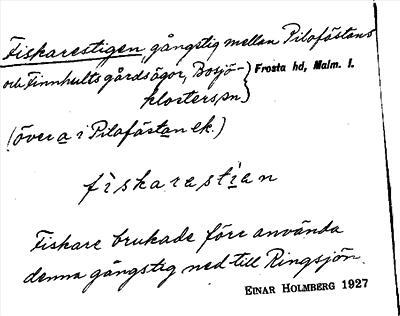 Fiskarestigen, gångstig mellan Pilafästans
och Finnhults gårdsägor, Bosjö- Frosta hd, Malm. l.
klosters sn.
(över a i Pilafästan ek.)
fiskarastían
Fiskare brukade förr använda
denna gångstig ned till Ringsjön.
EINAR HOLMBERG 1927